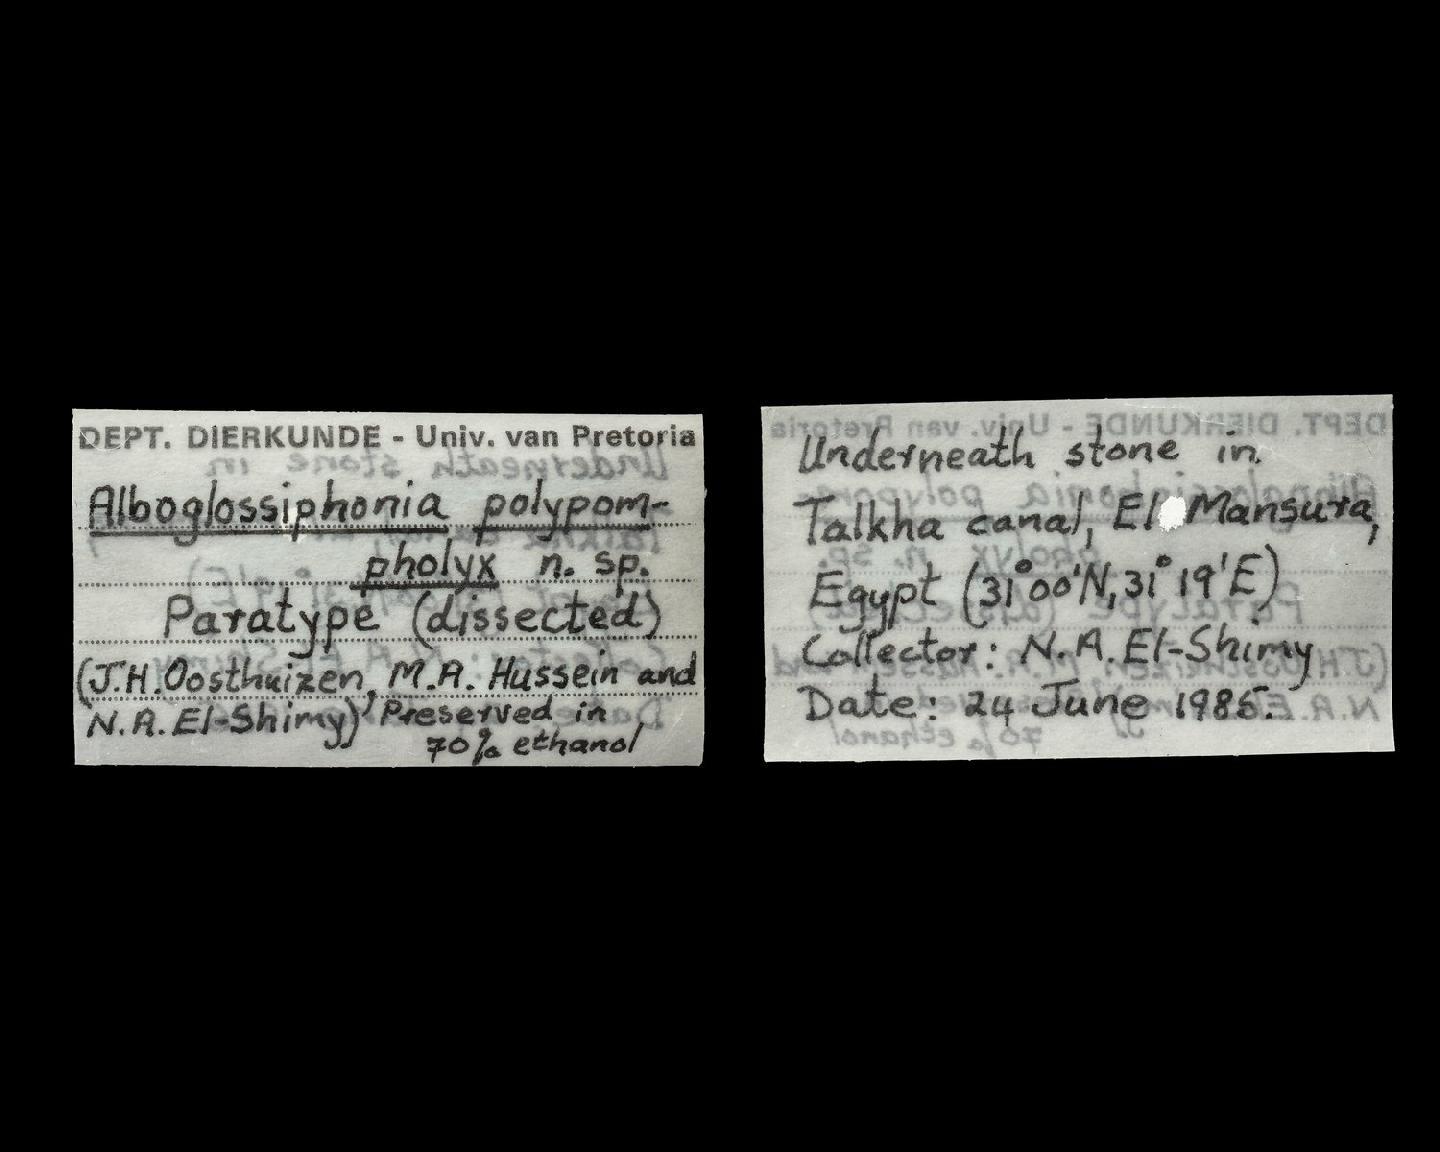 DEPT. DIERKUNDE - Univ. van Pretoria
Alboglossiphonia polypom-
pholyx n. sp.
Paratype (dissected)
(J.H. Oosthuizen, M.A. Hussein and
N.A. El-Shimy) Preserved in
70% ethanol
Underneath stone in
Talkha canal, El Mansura,
Egypt (31°00'N, 31°19'E)
Collector: N.A. El-Shimy
Date: 24 June 1985.